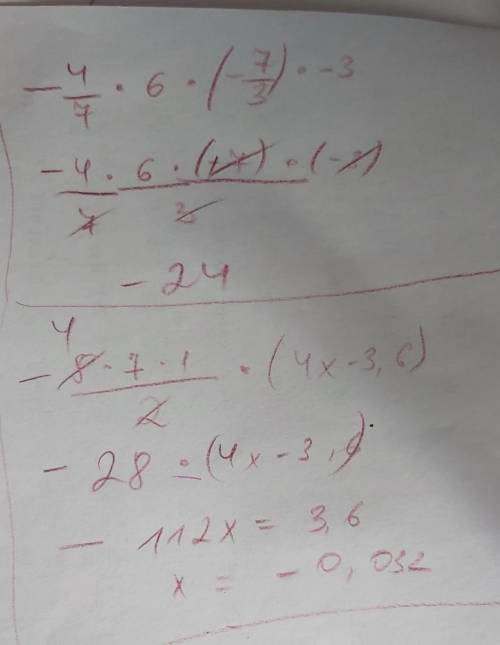 - 4/7 · 6 · (- 7/3) · -3
- 4 · 6 · (+7) · (-3) / 7 3
- 24
4
- 8 · 7 · 1 / 2 · (4x - 3,6)
- 28 · (4x - 3,6)
- 112x = 3,6
x = - 0,032